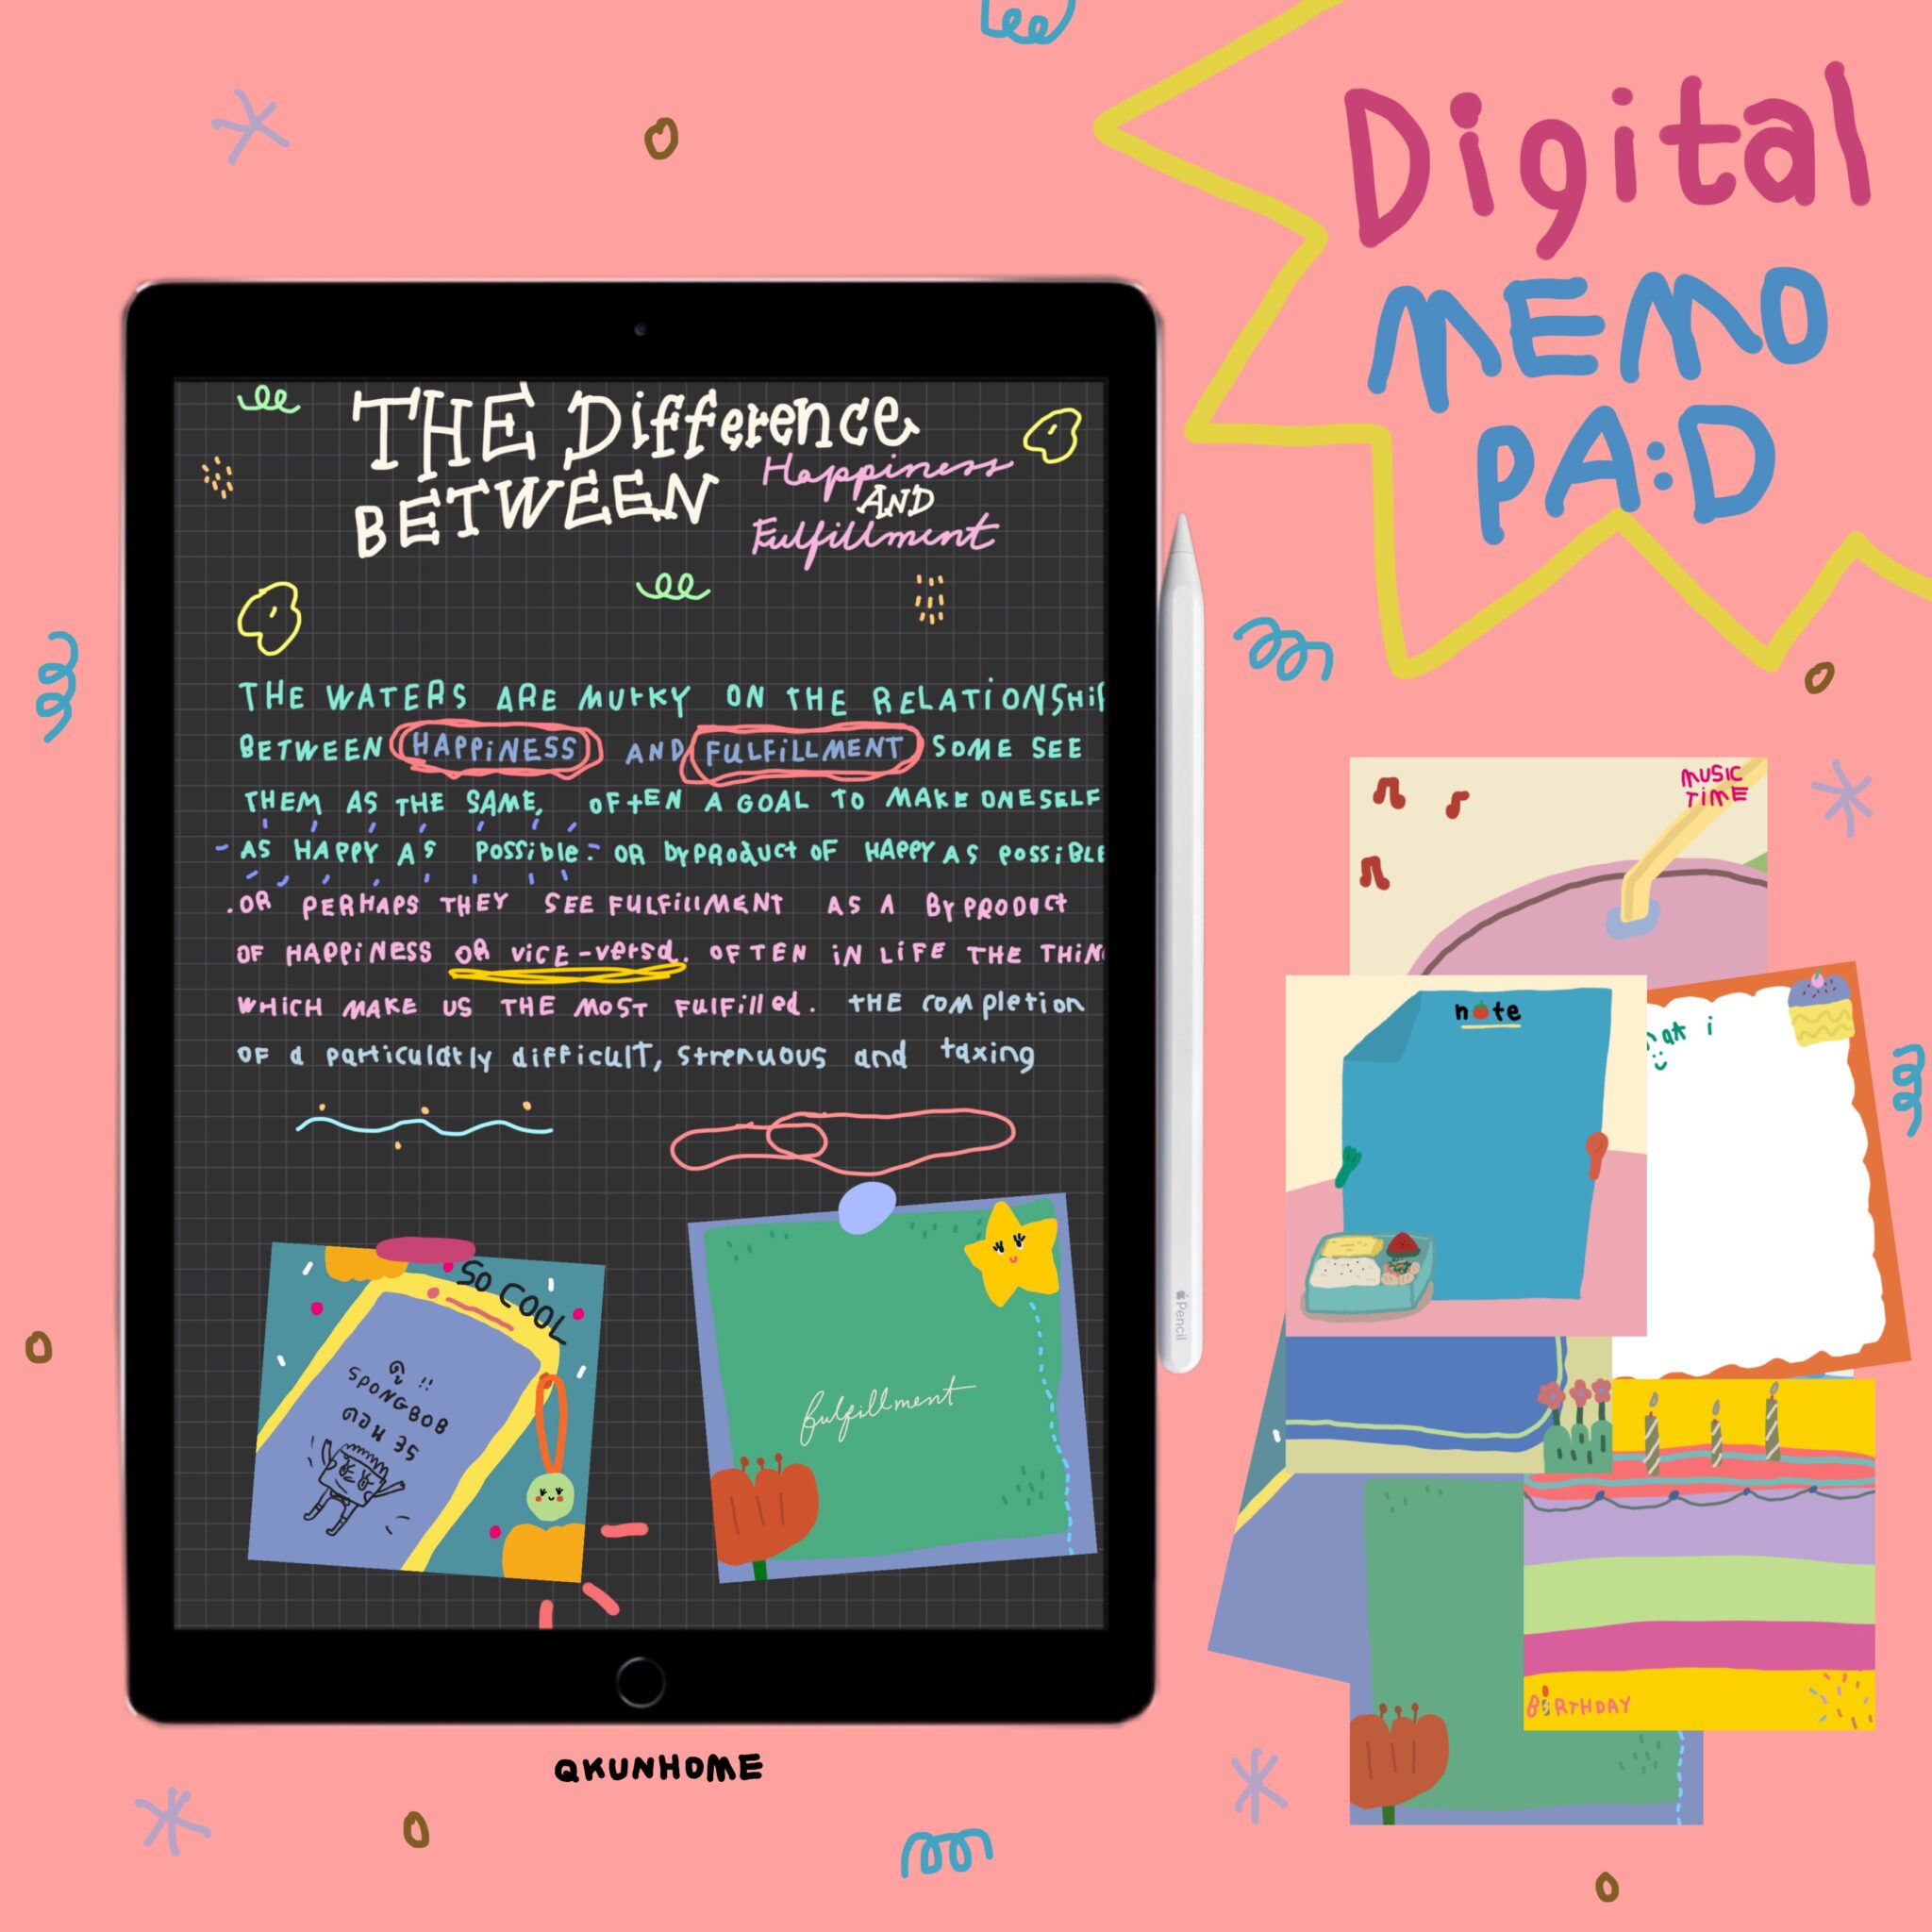 Digital
MEMO
PA:D
THE Difference
BETWEEN Happiness
AND
Fulfillment
THE WATERS ARE MURKY ON THE RELATIONSHIP
BETWEEN HAPPINESS AND FULFILLMENT SOME SEE
THEM AS THE SAME, OFTEN A GOAL TO MAKE ONESELF
- AS HAPPY AS POSSIBLE - OR byPRODUCT OF HAPPY AS POSSIBLE
.OR PERHAPS THEY SEE FULFILLMENT AS A BYPRODUCT
OF HAPPINESS OR VICE-VERSA. OFTEN IN LIFE THE THIN
WHICH MAKE US THE MOST FULFILLED. THE COMPLETION
OF a particularly difficult, strenuous and taxing
SO COOL
ดู !!
SPONGBOB
ตอน 35
fulfillment
Pencil
QKUNHOME
MUSIC
TIME
note
at i
BIRTHDAY